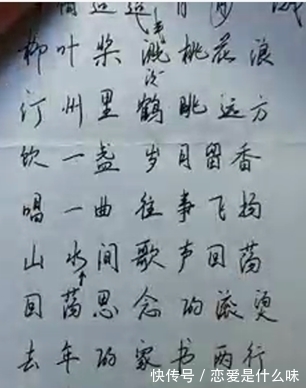 柳叶桨溅桃花浪
汀州里鹤眺远方
饮一盏岁月留香
唱一曲往事飞扬
山水间歌声回荡
回荡思念的滚烫
去年的家书两行
快传号/恋爱是什么味